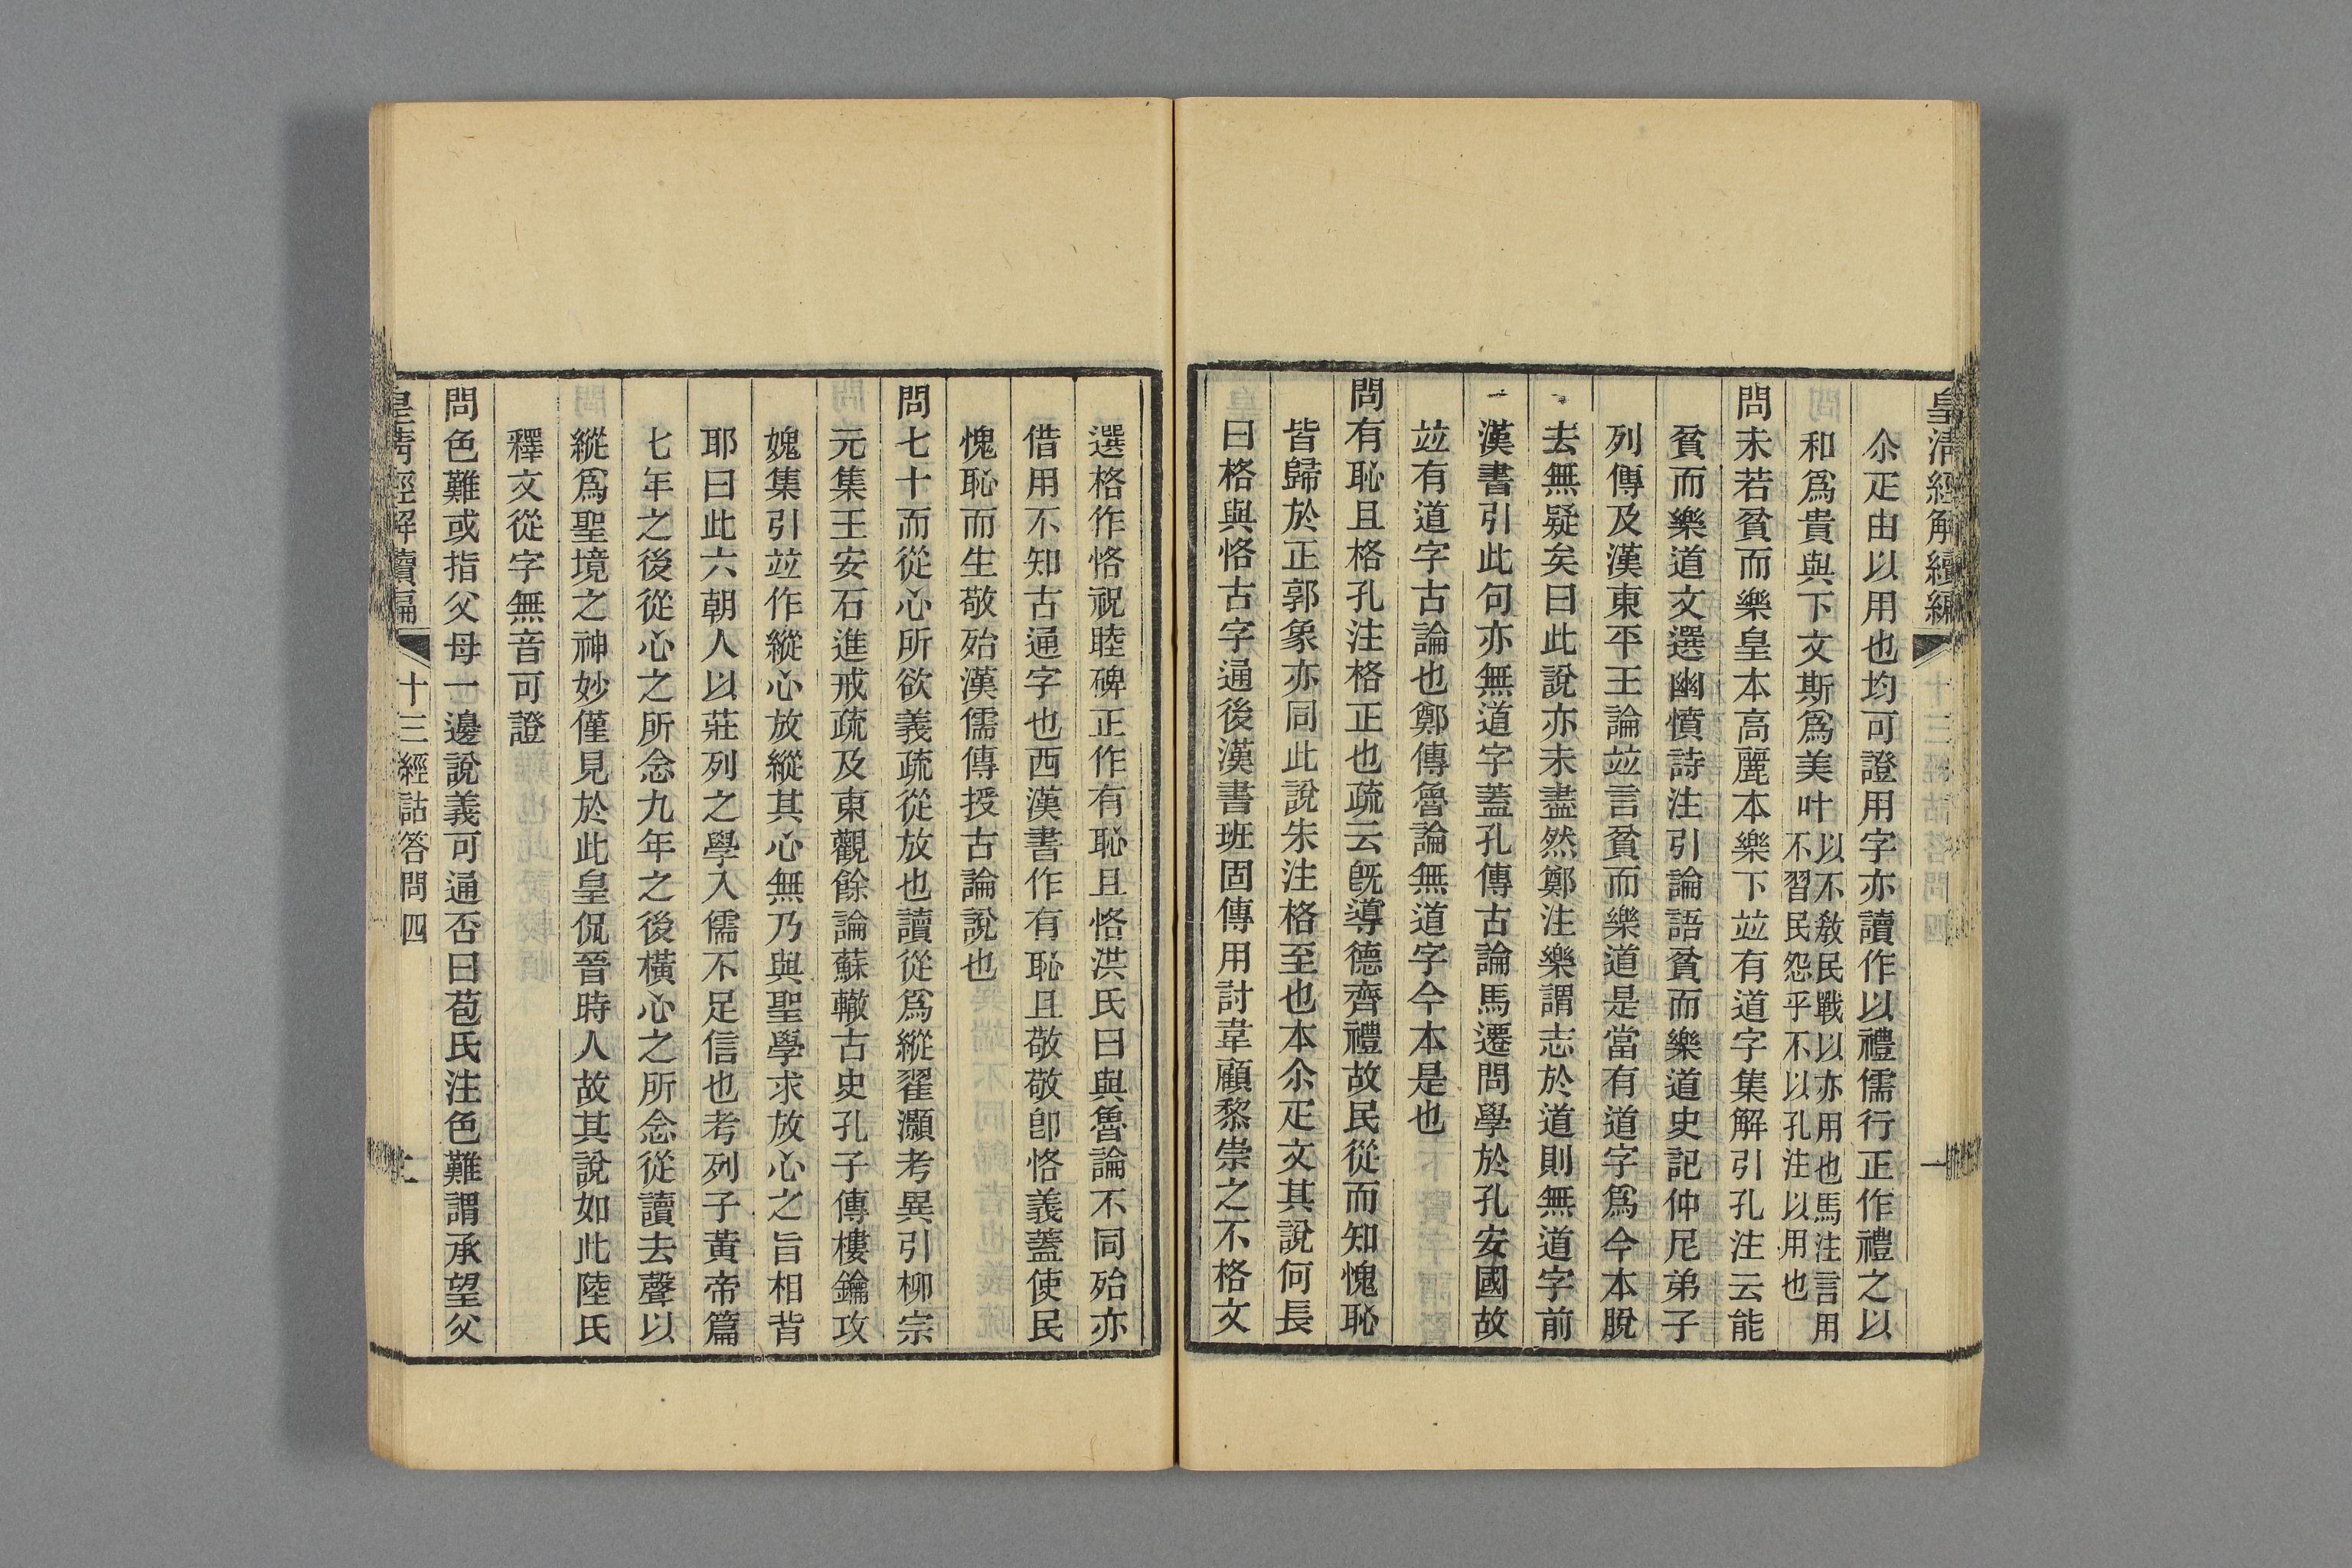 皇清經解續編
尒疋由以用也均可證用字亦讀作以禮儒行正作禮之以
和爲貴與下文斯爲美叶以不敎民戰以亦用也馬注言用
不習民怨乎不以孔注以用也
問未若貧而樂皇本高麗本樂下竝有道字集解引孔注云能
貧而樂道文選幽憤詩注引論語貧而樂道史記仲尼弟子
列傳及漢東平王論竝言貧而樂道是當有道字爲今本脫
去無疑矣曰此說亦未盡然鄭注樂謂志於道則無道字前
漢書引此句亦無道字蓋孔傳古論馬遷問學於孔安國故
竝有道字古論也鄭傳魯論無道字今本是也
問有恥且格孔注格正也疏云旣導德齊禮故民從而知愧恥
皆歸於正郭象亦同此說朱注格至也本尒疋文其說何長
曰格與恪古字通後漢書班固傳用討韋顧黎崇之不格文
選格作恪祝睦碑正作有恥且恪洪氏曰與魯論不同殆亦
借用不知古通字也西漢書作有恥且敬敬卽恪義蓋使民
愧恥而生敬殆漢儒傳授古論說也
問七十而從心所欲義疏從放也讀從爲縱翟灝考異引柳宗
元集王安石進戒疏及東觀餘論蘇轍古史孔子傳樓鑰攻
媿集引竝作縱心放縱其心無乃與聖學求放心之旨相背
耶曰此六朝人以莊列之學入儒不足信也考列子黃帝篇
七年之後從心之所念九年之後橫心之所念從讀去聲以
縱爲聖境之神妙僅見於此皇侃晉時人故其說如此陸氏
釋文從字無音可證
問色難或指父母一邊說義可通否曰苞氏注色難謂承望父
皇清經解續編
十三經詁答問四